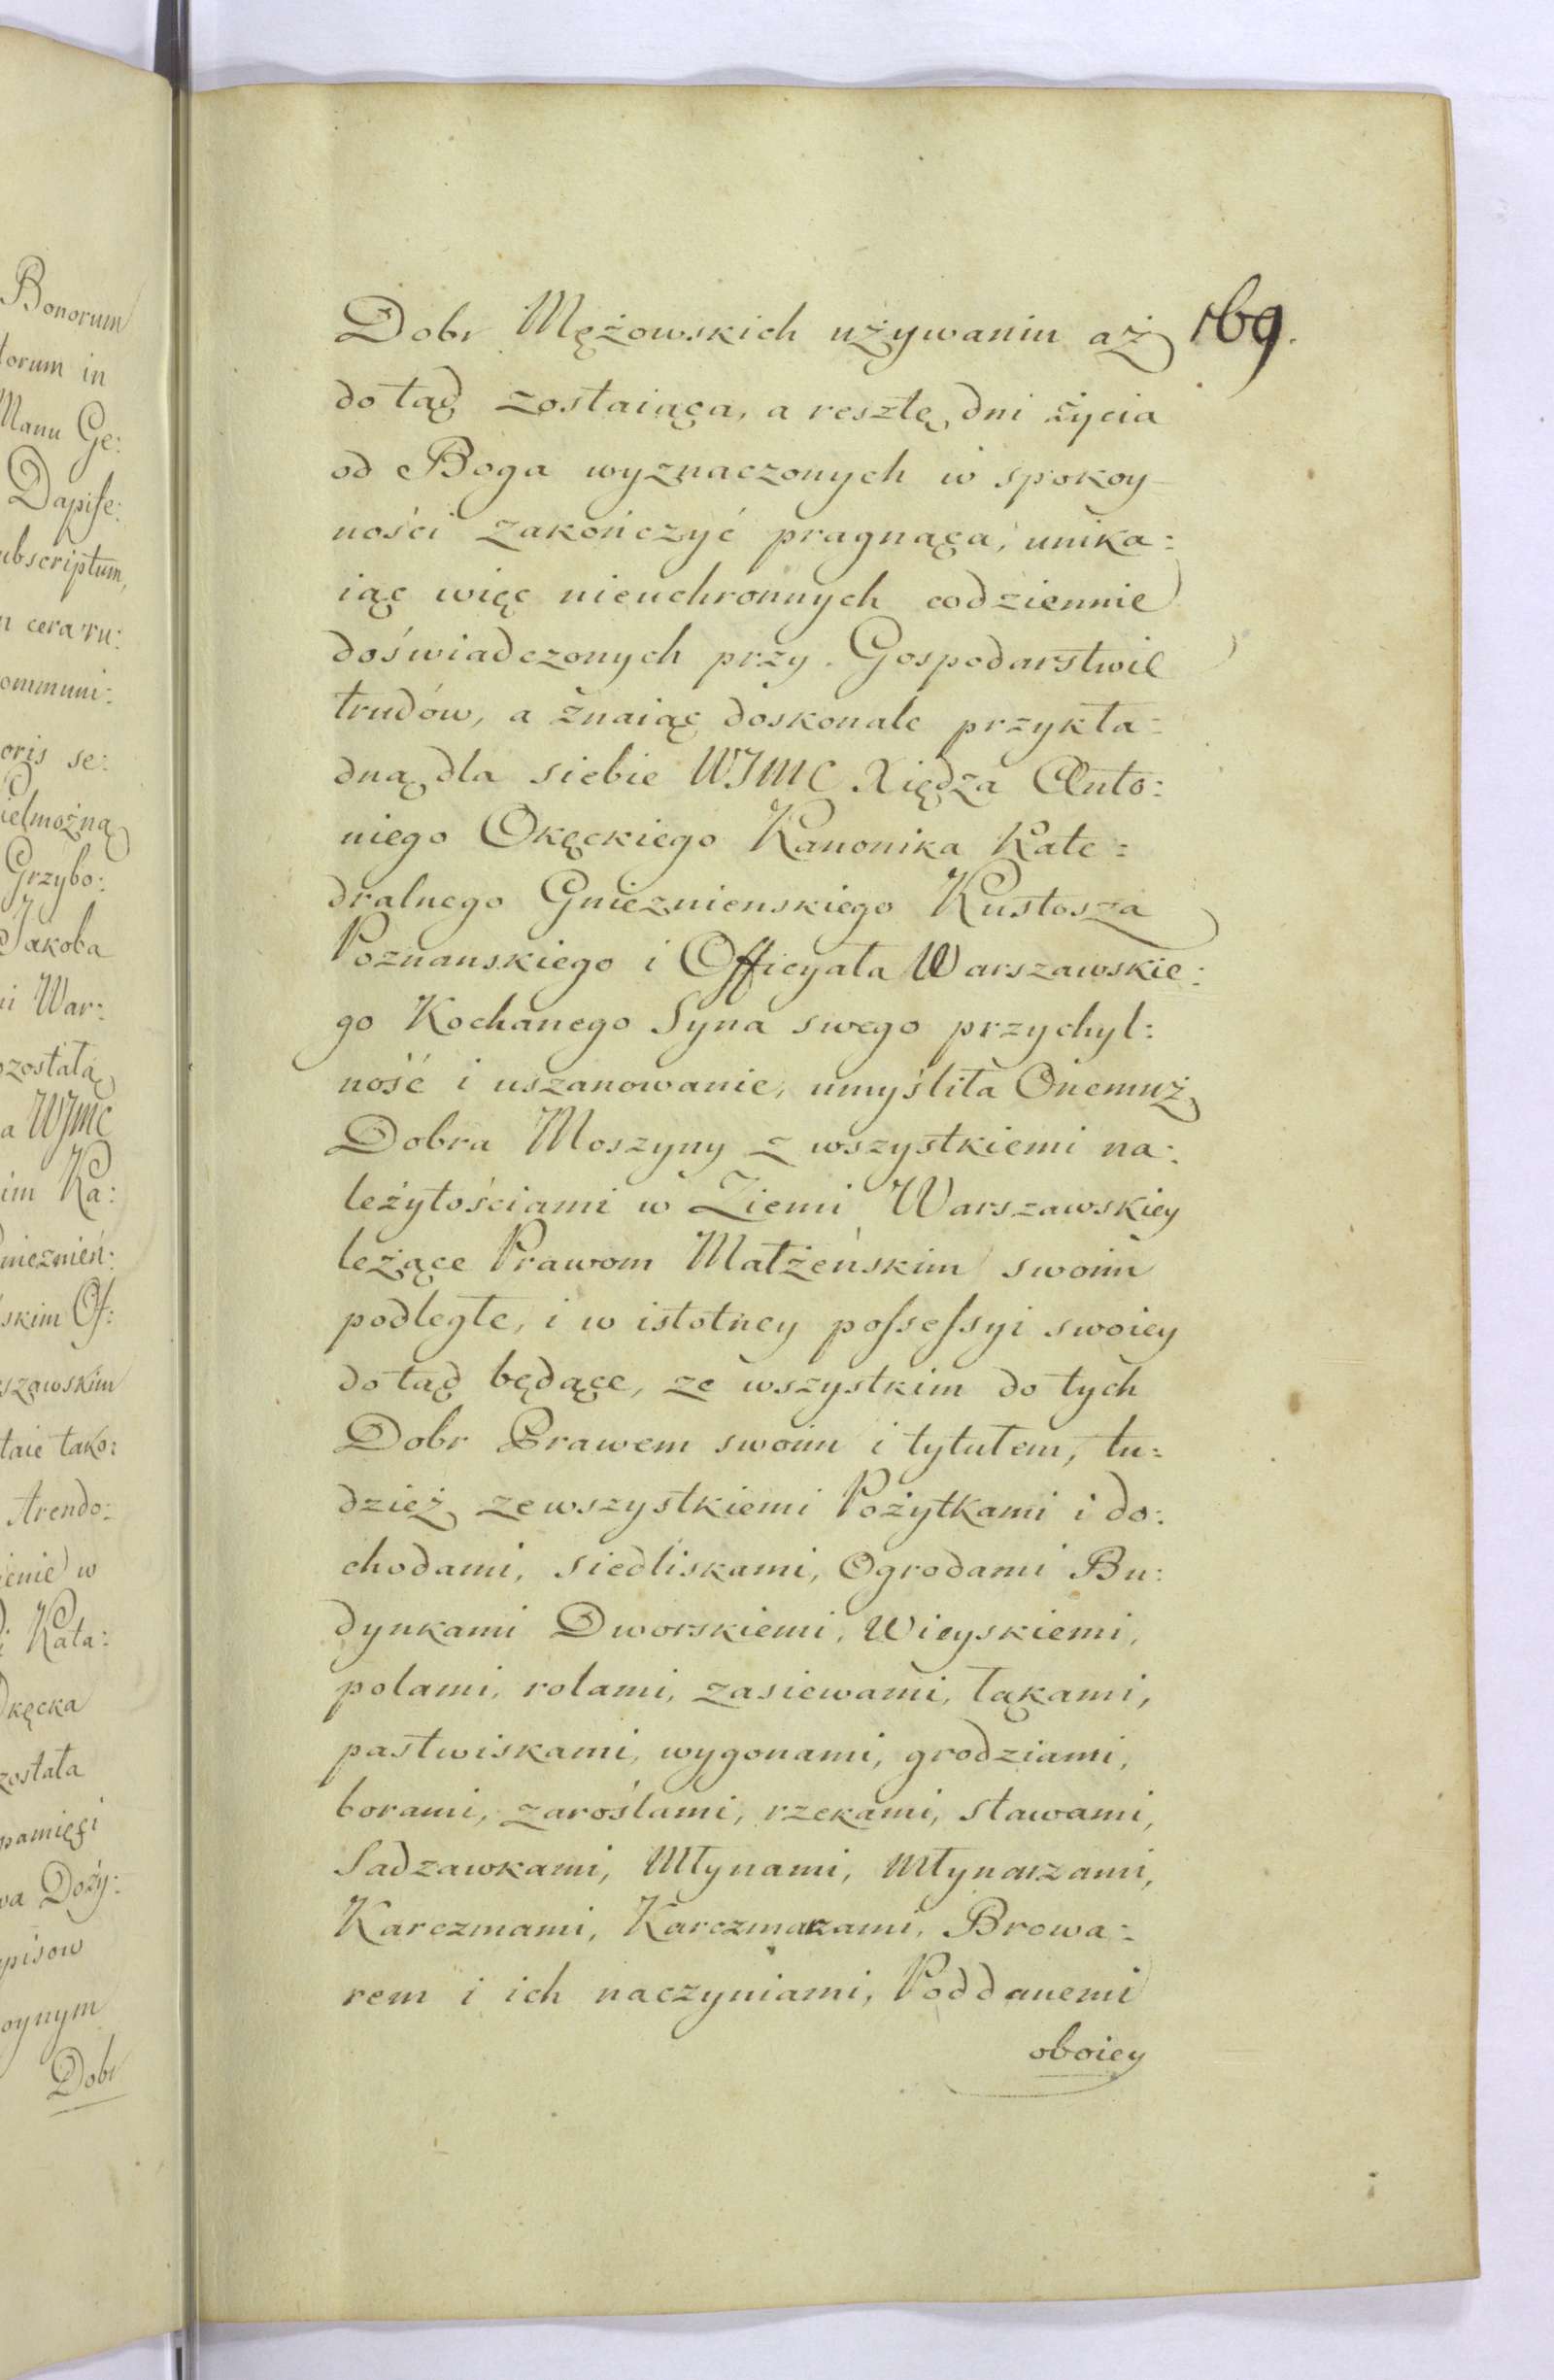 Bonorum
torum in
Manu Ge:
Dapife:
ubscriptum,
n cera ru:
ommuni:
oris se:
ielmożną
Grzybo:
Jakoba
ni War:
ozostałą
a WJMC
im Ka:
nieznień:
skim Of:
szawskim
taie tako:
Arendo:
ienie w
i Kata:
Okęcka
została
pamięci
wa Doży:
pisow
oynym
Dobr
169.
Dobr Mężowskich używaniu aż
do tąd zostaiąca, a resztę dni życia
od Boga wyznaczonych w spokoy
ności zakończyć pragnąca, unika:
iąc więc nieuchronnych codziennie
doświadczonych przy Gospodarstwie
trudów, a znaiąc doskonale przykła:
dną dla siebie WJMC Xiędza Anto:
niego Okęckiego Kanonika Kate:
dralnego Gnieznienskiego Kustosza
Poznanskiego i Officyała Warszawskie:
go Kochanego Syna swego przychyl:
ność i uszanowanie, umyśliła Onemuż
Dobra Moszyny z wszystkiemi na:
leżytościami w Ziemi Warszawskiey
leżące Prawom Małżeńskim swoim
podległe, i w istotney possessyi swoiey
do tąd będące, ze wszystkim do tych
Dobr Prawem swoim i tytułem, tu:
dzież zewszystkiemi Pożytkami i do:
chodami, siedliskami, Ogrodami Bu:
dynkami Dworskiemi, Wieyskiemi,
polami, rolami, zasiewami, łąkami,
pastwiskami, wygonami, grodziami,
borami, zaroślami, rzekami, stawami,
Sadzawkami, Młynami, Młynarzami,
Karczmami, Karczmarzami, Browa:
rem i ich naczyniami, Poddanemi
oboiey